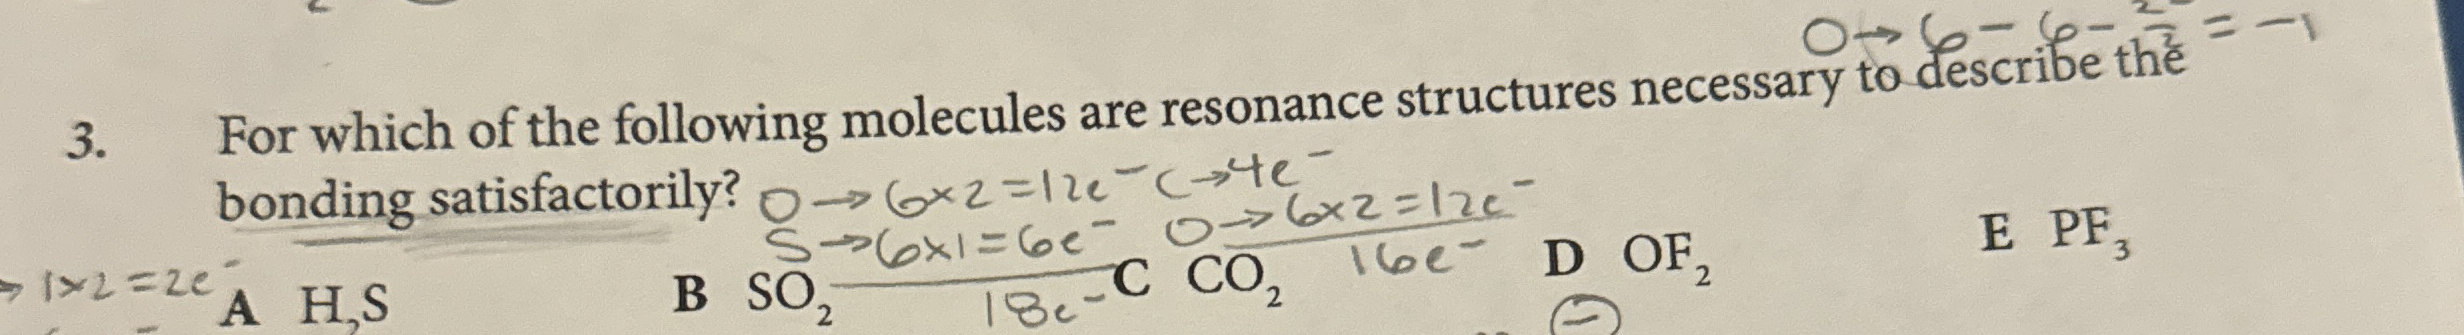 O → 6 - 6 - 2/2 = -1
3. For which of the following molecules are resonance structures necessary to describe the
bonding satisfactorily?
O → 6×2=12e⁻ C → 4e⁻
S → 6×1=6e⁻ O → 6×2=12e⁻
18e⁻ 16e⁻
→ 1×2=2e⁻
A H₂S B SO₂ C CO₂ D OF₂ E PF₃